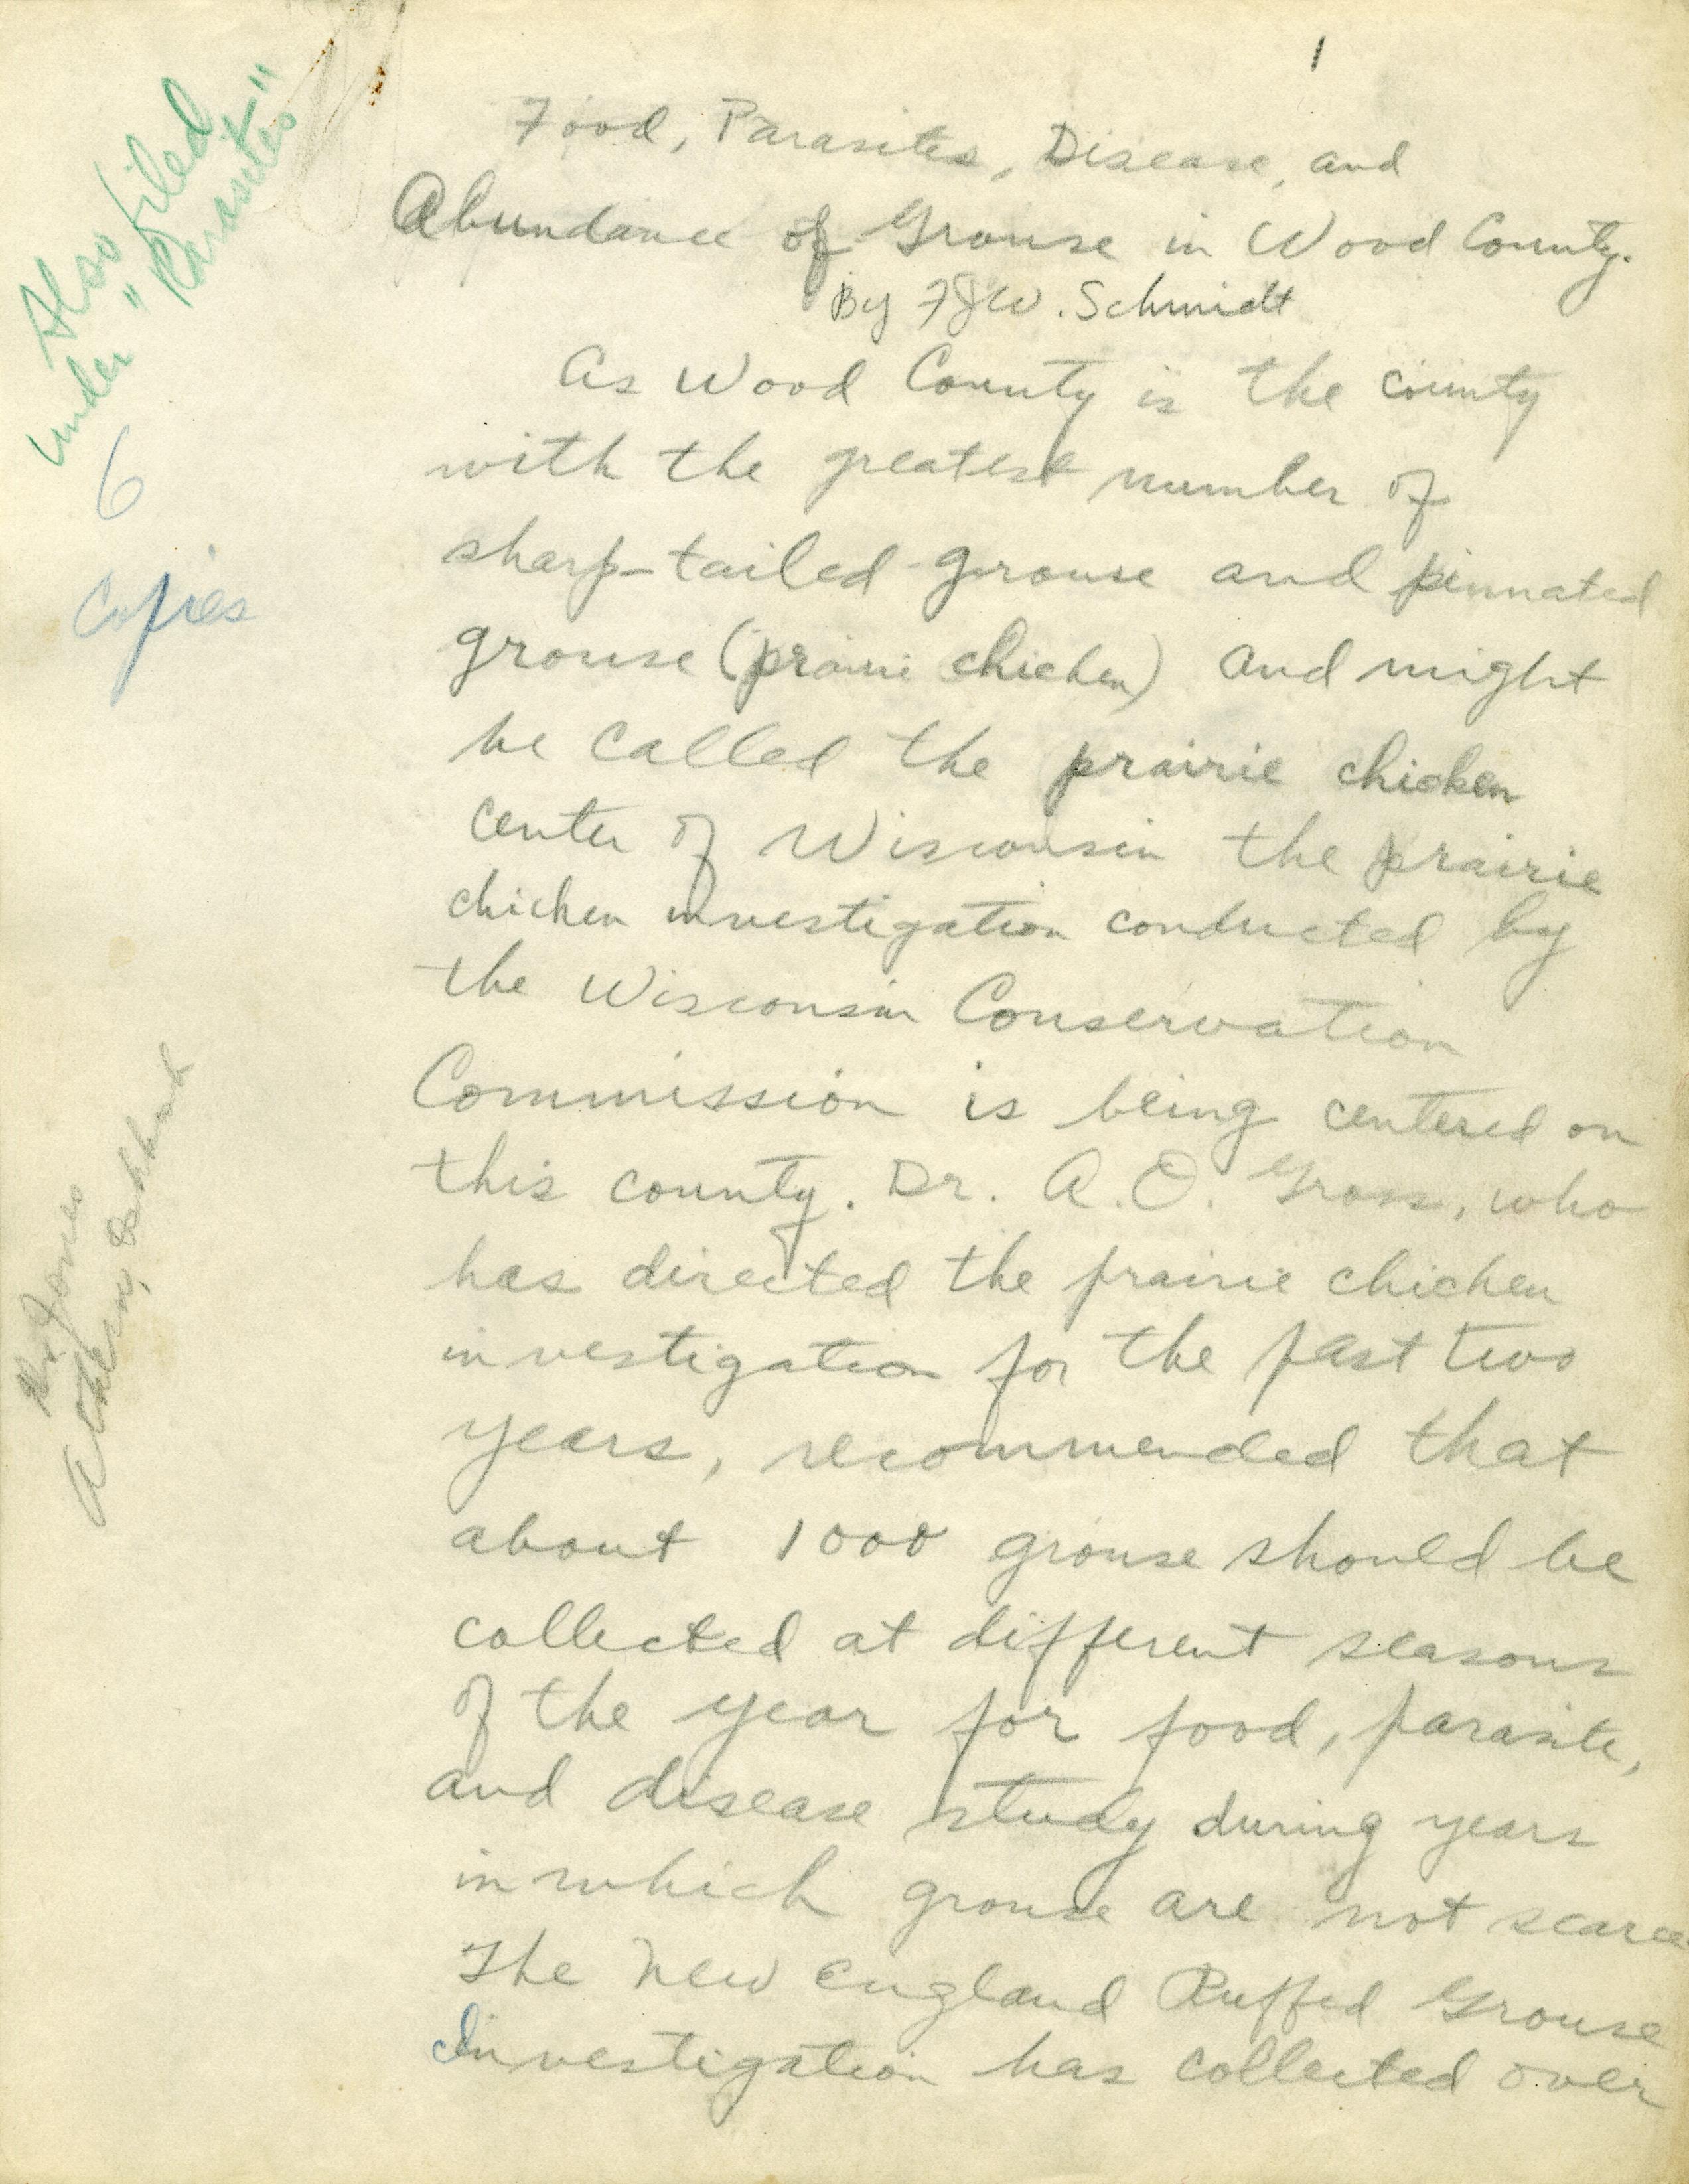 1
Also filed
under "Parasites"
6
Copies
Food, Parasites, Disease, and
Abundance of Grouse in Wood County.
By F.J.W. Schmidt
As Wood County is the county
with the greatest number of
sharp-tailed grouse and pinnated
grouse (prairie chicken) and might
be called the prairie chicken
center of Wisconsin the prairie
chicken investigation conducted by
the Wisconsin Conservation
Commission is being centered on
this county. Dr. A.O. Gross, who
has directed the prairie chicken
investigation for the past two
years, recommended that
about 1000 grouse should be
collected at different seasons
of the year for food, parasite,
and disease study during years
in which grouse are not scarce
The New England Ruffed Grouse
Investigation has collected over
Jones